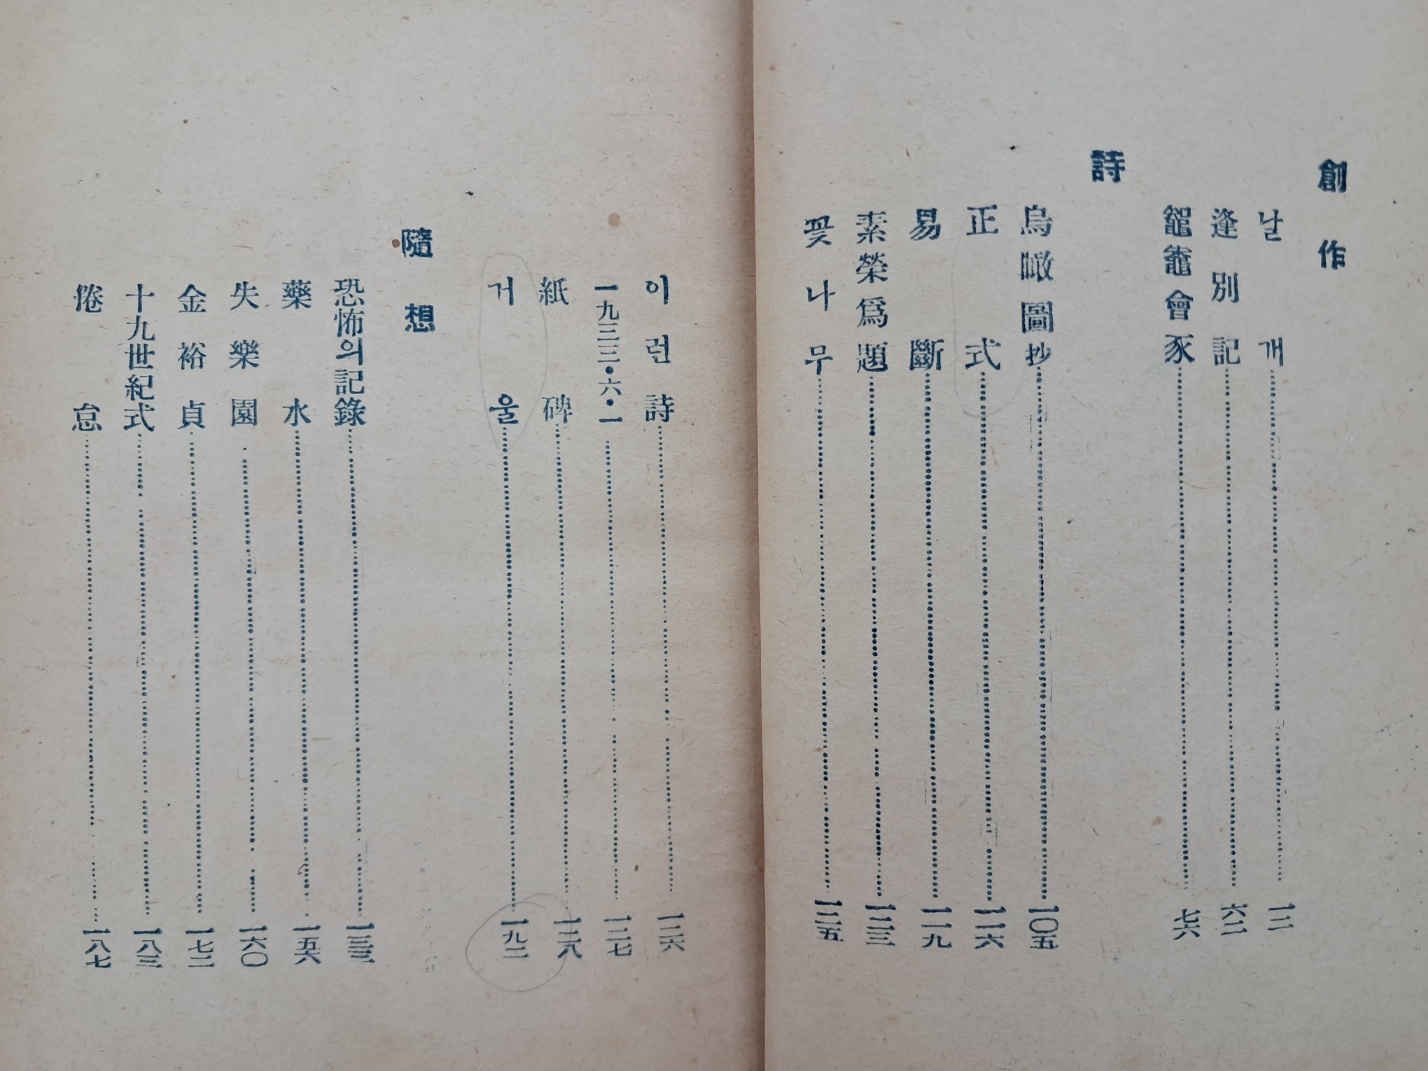 創作
날개 一二
逢別記 六二
鼅鼄會豕 七六
詩
烏瞰圖抄 一〇五
正式 一一六
易斷 一一九
素榮爲題 一二三
꽃나무 一二五
이런詩 一二六
一九三三・六・一 一二七
紙碑 一二八
거울
隨想
恐怖의記錄 一三三
藥水 一五六
失樂園 一六〇
金裕貞 一七二
十九世紀式 一八三
倦怠 一八七